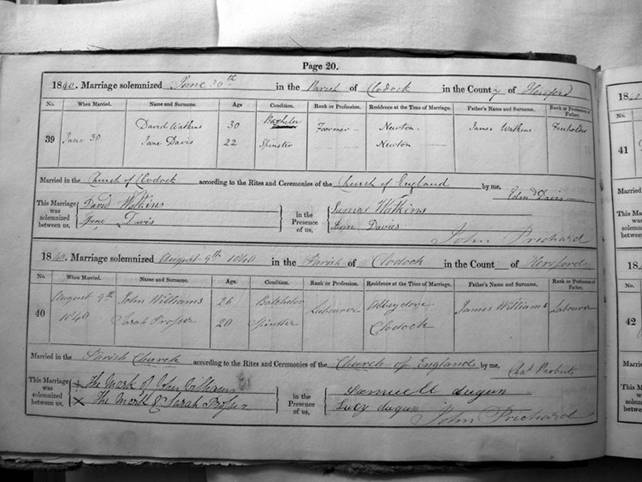 Page 20.
1840. Marriage solemnized June 30th in the Parish of Clodock in the County of Hereford
No. When Married. Name and Surname. Age Condition. Rank or Profession. Residence at the Time of Marriage. Father's Name and Surname. Rank or Profession of Father.
39 June 30 David Watkins 30 Bachelor Farmer Newton James Watkins
Jane Davis 22 Spinster Newton
Married in the Church of Clodock according to the Rites and Ceremonies of the Church of England by me,
This Marriage was solemnized between us,
David Watkins
Davis
in the Presence of us,
Watkins
Davies
John Prichard
1840. Marriage solemnized August 9th 1840 in the Parish of Clodock in the County of Hereford
No. When Married. Name and Surname. Age Condition. Rank or Profession. Residence at the Time of Marriage. Father's Name and Surname. Rank or Profession of Father.
40 August 9th John Williams 26 Batchelor Labourer James Williams Labourer
1840 Sarah Prosser 20 Spinster Clodock
Married in the Parish Church according to the Rites and Ceremonies of the Church of England by me,
This Marriage was solemnized between us,
X The Mark of John Williams
X The Mark of Sarah Prosser
in the Presence of us,
Samuell
Lucy
John Prichard
18
No.
41
42